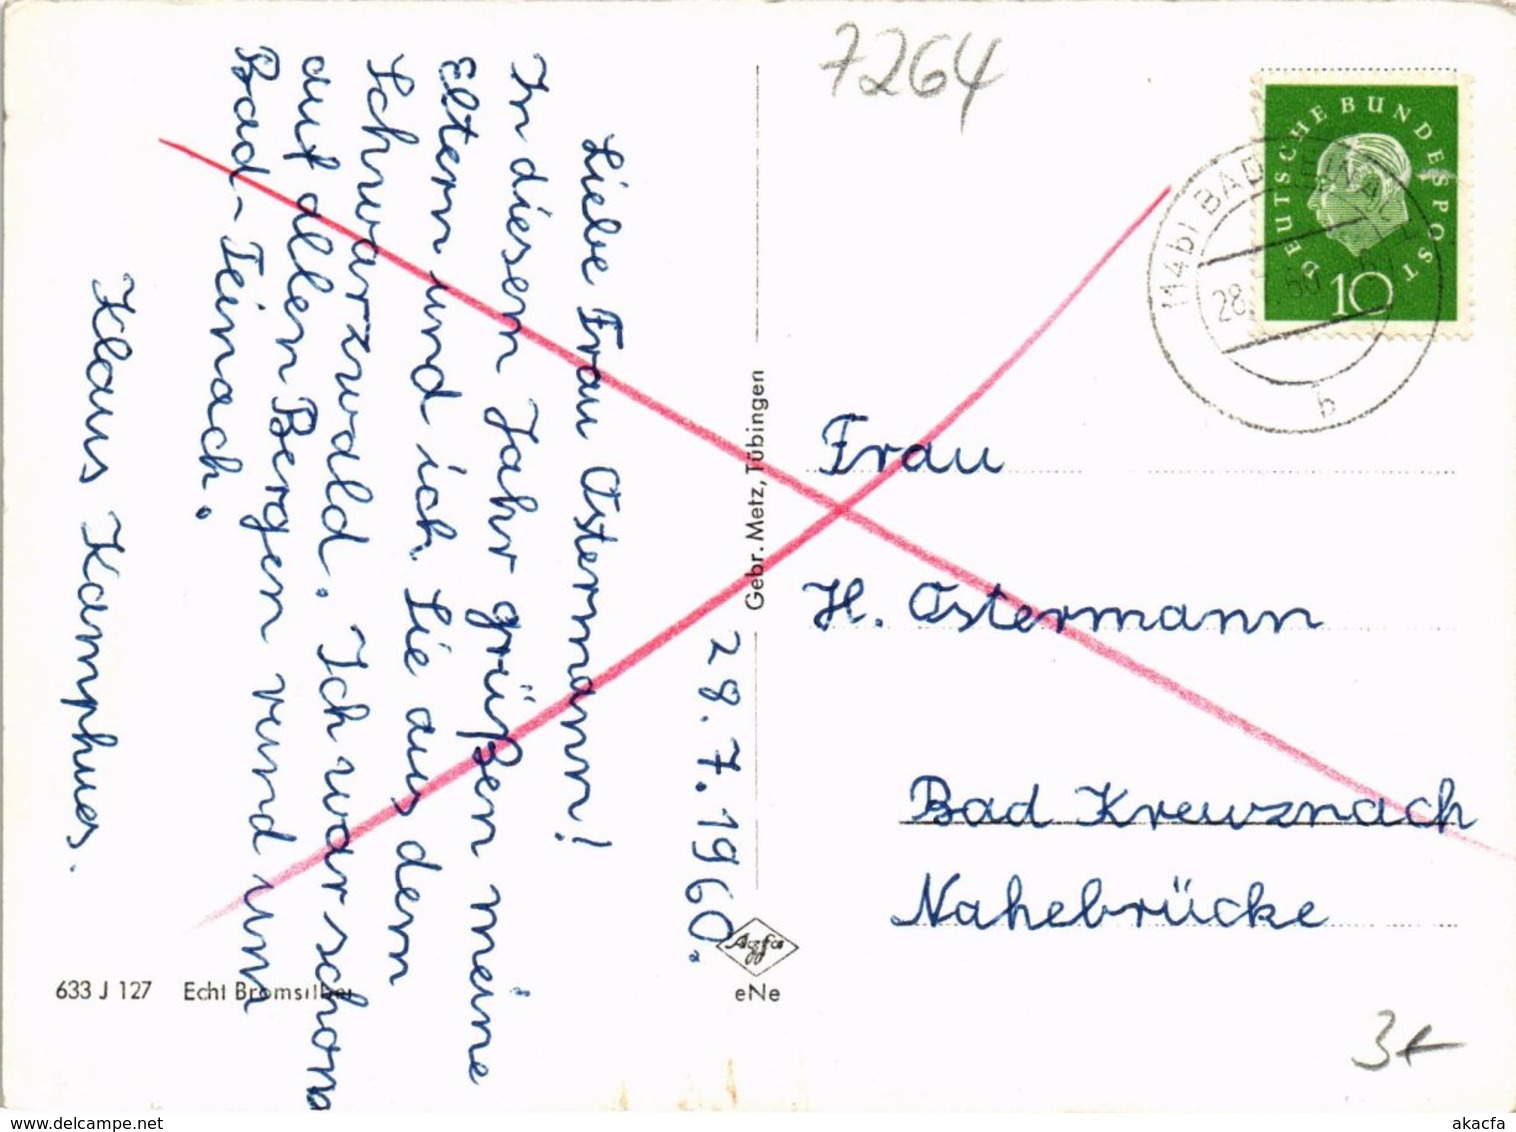 7264
28.7.1960.
Liebe Frau Ostermann!
In diesem Jahr grüßen meine
Eltern und ich Sie aus dem
Schwarzwald. Ich war schon
auf allen Bergen rund um
Bad-Teinach.
Klaus Kamphues.
633 J 127 Echt Bromsilber
Gebr. Metz, Tübingen
Agfa
eNe
DEUTSCHE BUNDESPOST
10
(14b) BAD TEINACH
28. 60
b
Frau
H. Ostermann
Bad Kreuznach
Nahebrücke
3
akacfa